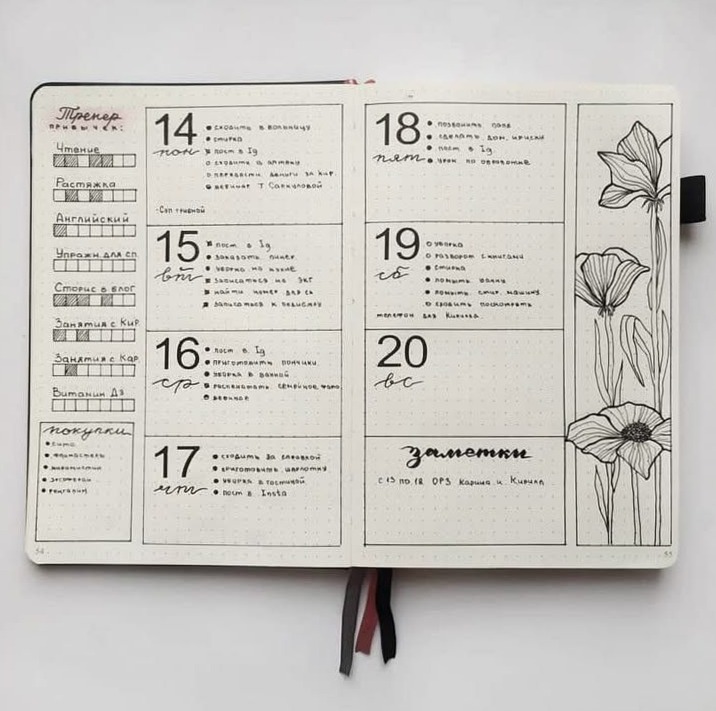 Трекер
привычек:
Чтение
Растяжка
Английский
Упражн. для сп.
Сторис в блог
Занятия с Кир
Занятия с Кар
Витамин Д3
покупки
14
пон
сходить в больницу
стирка
пост в Ig
сходить в аптеку
перевести деньги за Кир.
вебинар Т
15
вт
пост в Ig
заказать
уборка на кухне
записаться на ЭКГ
найти номер для
записаться к
16
ср
пост в Ig
приготовить пончики
уборка в ванной
распечатать семейное фото
вебинар
17
чт
сходить за справкой
приготовить шарлотку
уборка в гостиной
пост в Insta
18
пят
позвонить папе
сделать дом.
пост в Ig
урок по обработке
19
сб
уборка
разворот с книгами
стирка
помыть ванну
помыть стир. машину
сходить посмотреть
телефон для Кирилла
20
вс
заметки
с 13 по 18 ОРЗ Карина и Кирилл
54
55